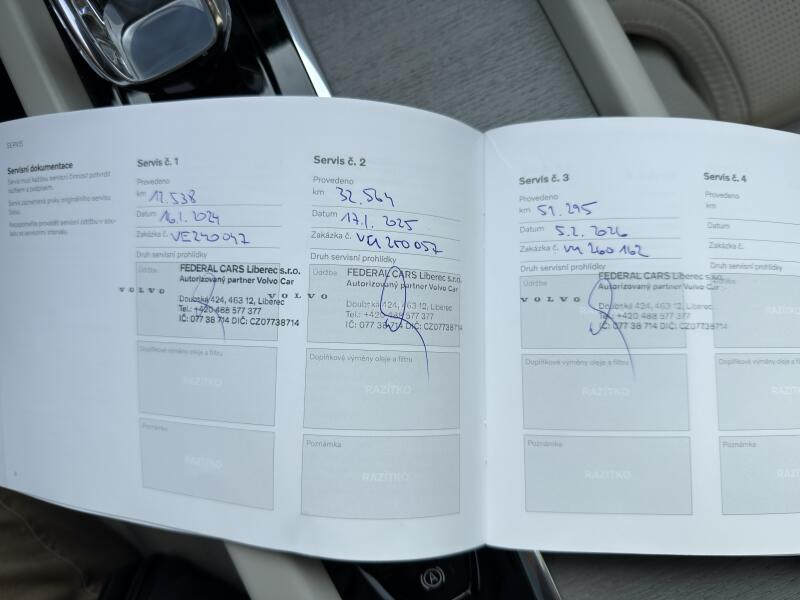 SERVIS
Servisní dokumentace
Servis č. 1
Provedeno
km 12.538
Datum 16.1. 2024
Zakázka č. VE240047
Druh servisní prohlídky
Údržba
FEDERAL CARS Liberec s.r.o.
Autorizovaný partner Volvo Car
VOLVO
Doubská 424, 463 12, Liberec
Tel.: +420 488 577 377
IČ: 077 38 714 DIČ: CZ07738714
Doplňkové výměny oleje a filtru
RAZÍTKO
Poznámka
RAZÍTKO
Servis č. 2
Provedeno
km 32.564
Datum 17.1. 2025
Zakázka č.
Druh servisní prohlídky
Údržba
FEDERAL CARS Liberec s.r.o.
Autorizovaný partner Volvo Car
VOLVO
Doubská 424, 463 12, Liberec
Tel.: +420 488 577 377
IČ: 077 38 714 DIČ: CZ07738714
Doplňkové výměny oleje a filtru
RAZÍTKO
Poznámka
RAZÍTKO
Servis č. 3
Provedeno
km 51.295
Datum 5.2. 2026
Zakázka č.
Druh servisní prohlídky
Údržba
FEDERAL CARS Liberec s.r.o.
Autorizovaný partner Volvo Car
VOLVO
Doubská 424, 463 12, Liberec
Tel.: +420 488 577 377
IČ: 077 38 714 DIČ: CZ07738714
Doplňkové výměny oleje a filtru
RAZÍTKO
Poznámka
RAZÍTKO
Servis č. 4
Provedeno
km
Datum
Zakázka č.
Druh servisní prohlídky
Doplňkové výměny oleje a
RAZÍT
Poznámka
RAZÍT